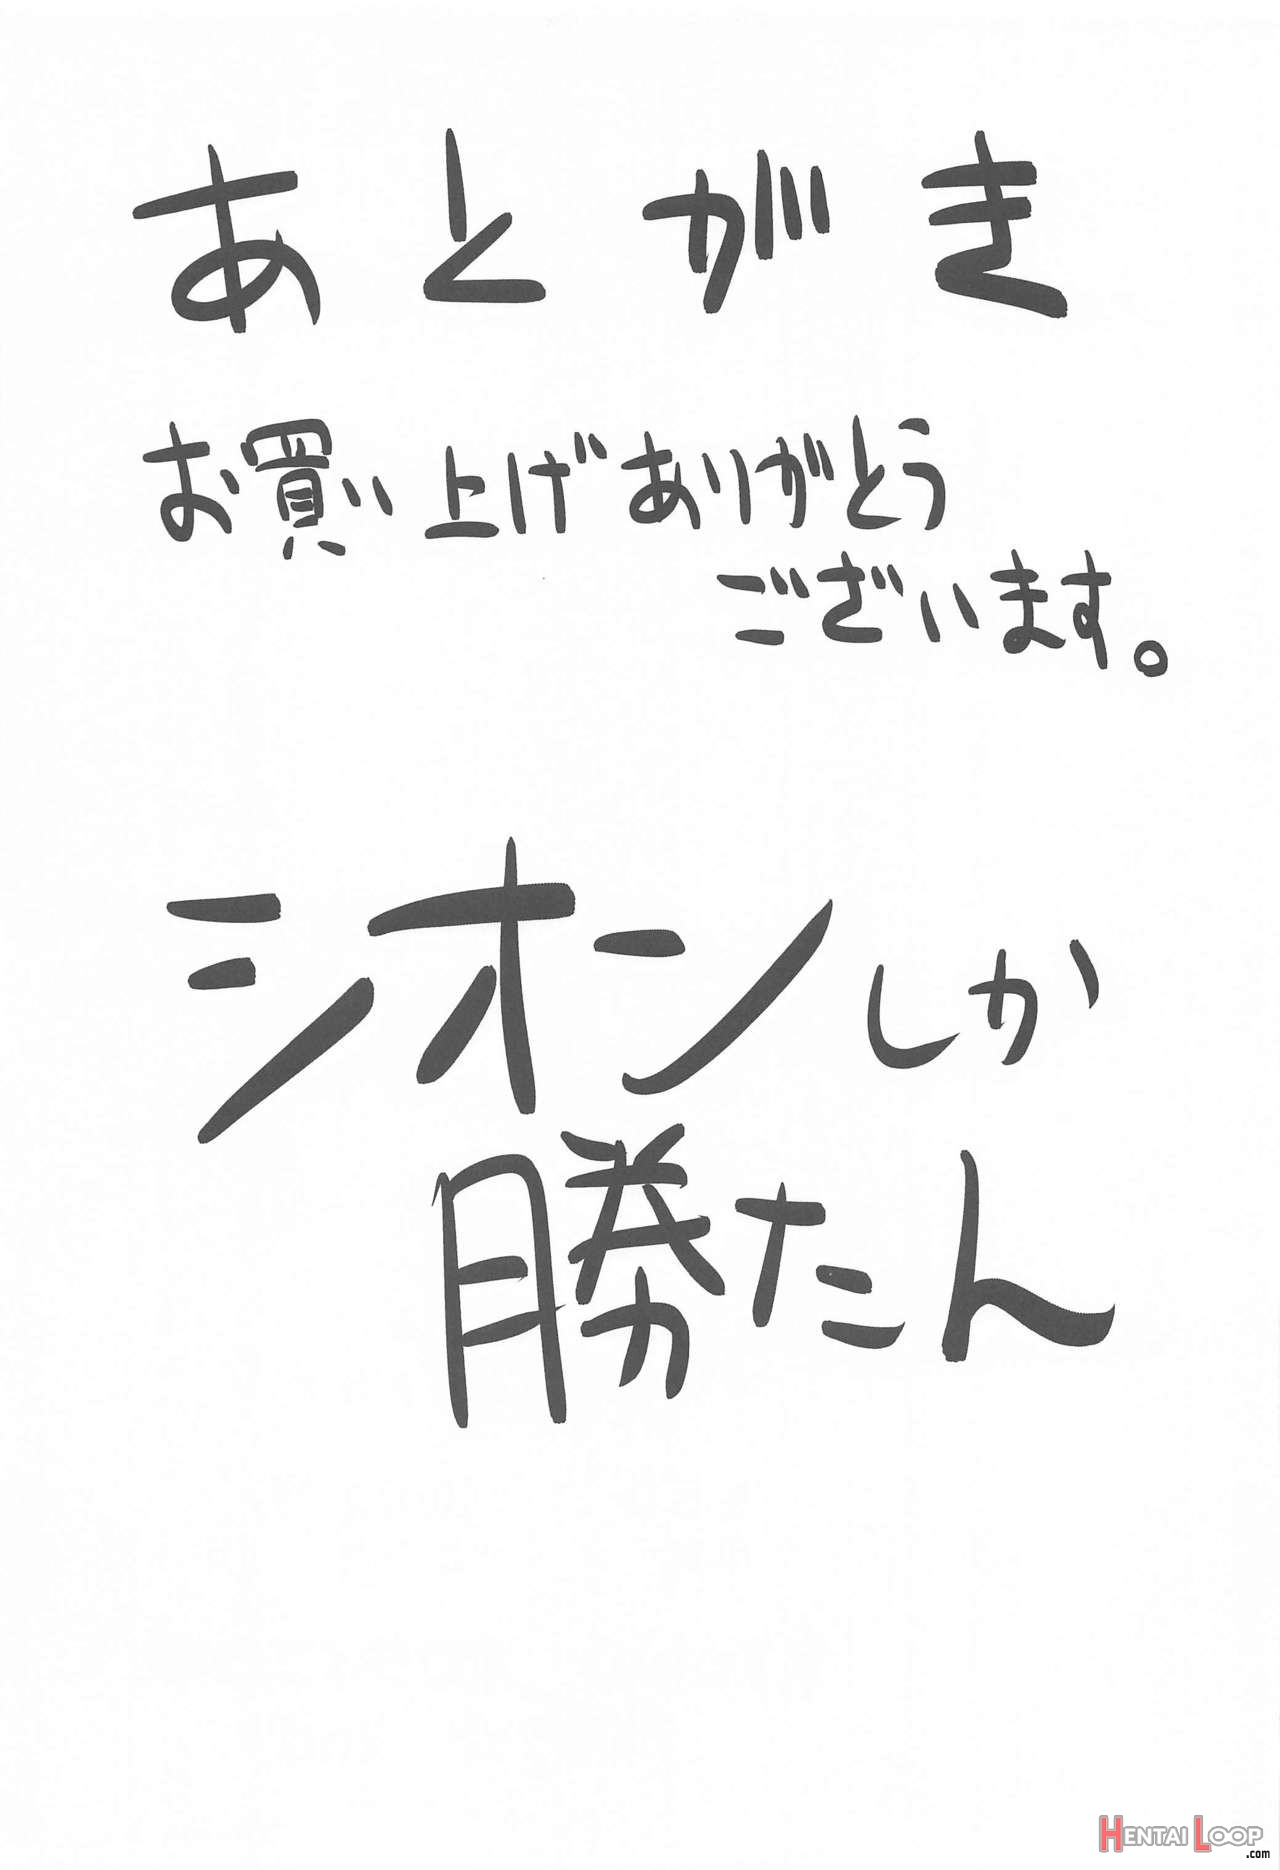 あとがき
お買い上げありがとう
ございます。
シオンしか
勝たん
HENTAI LOOP
.com